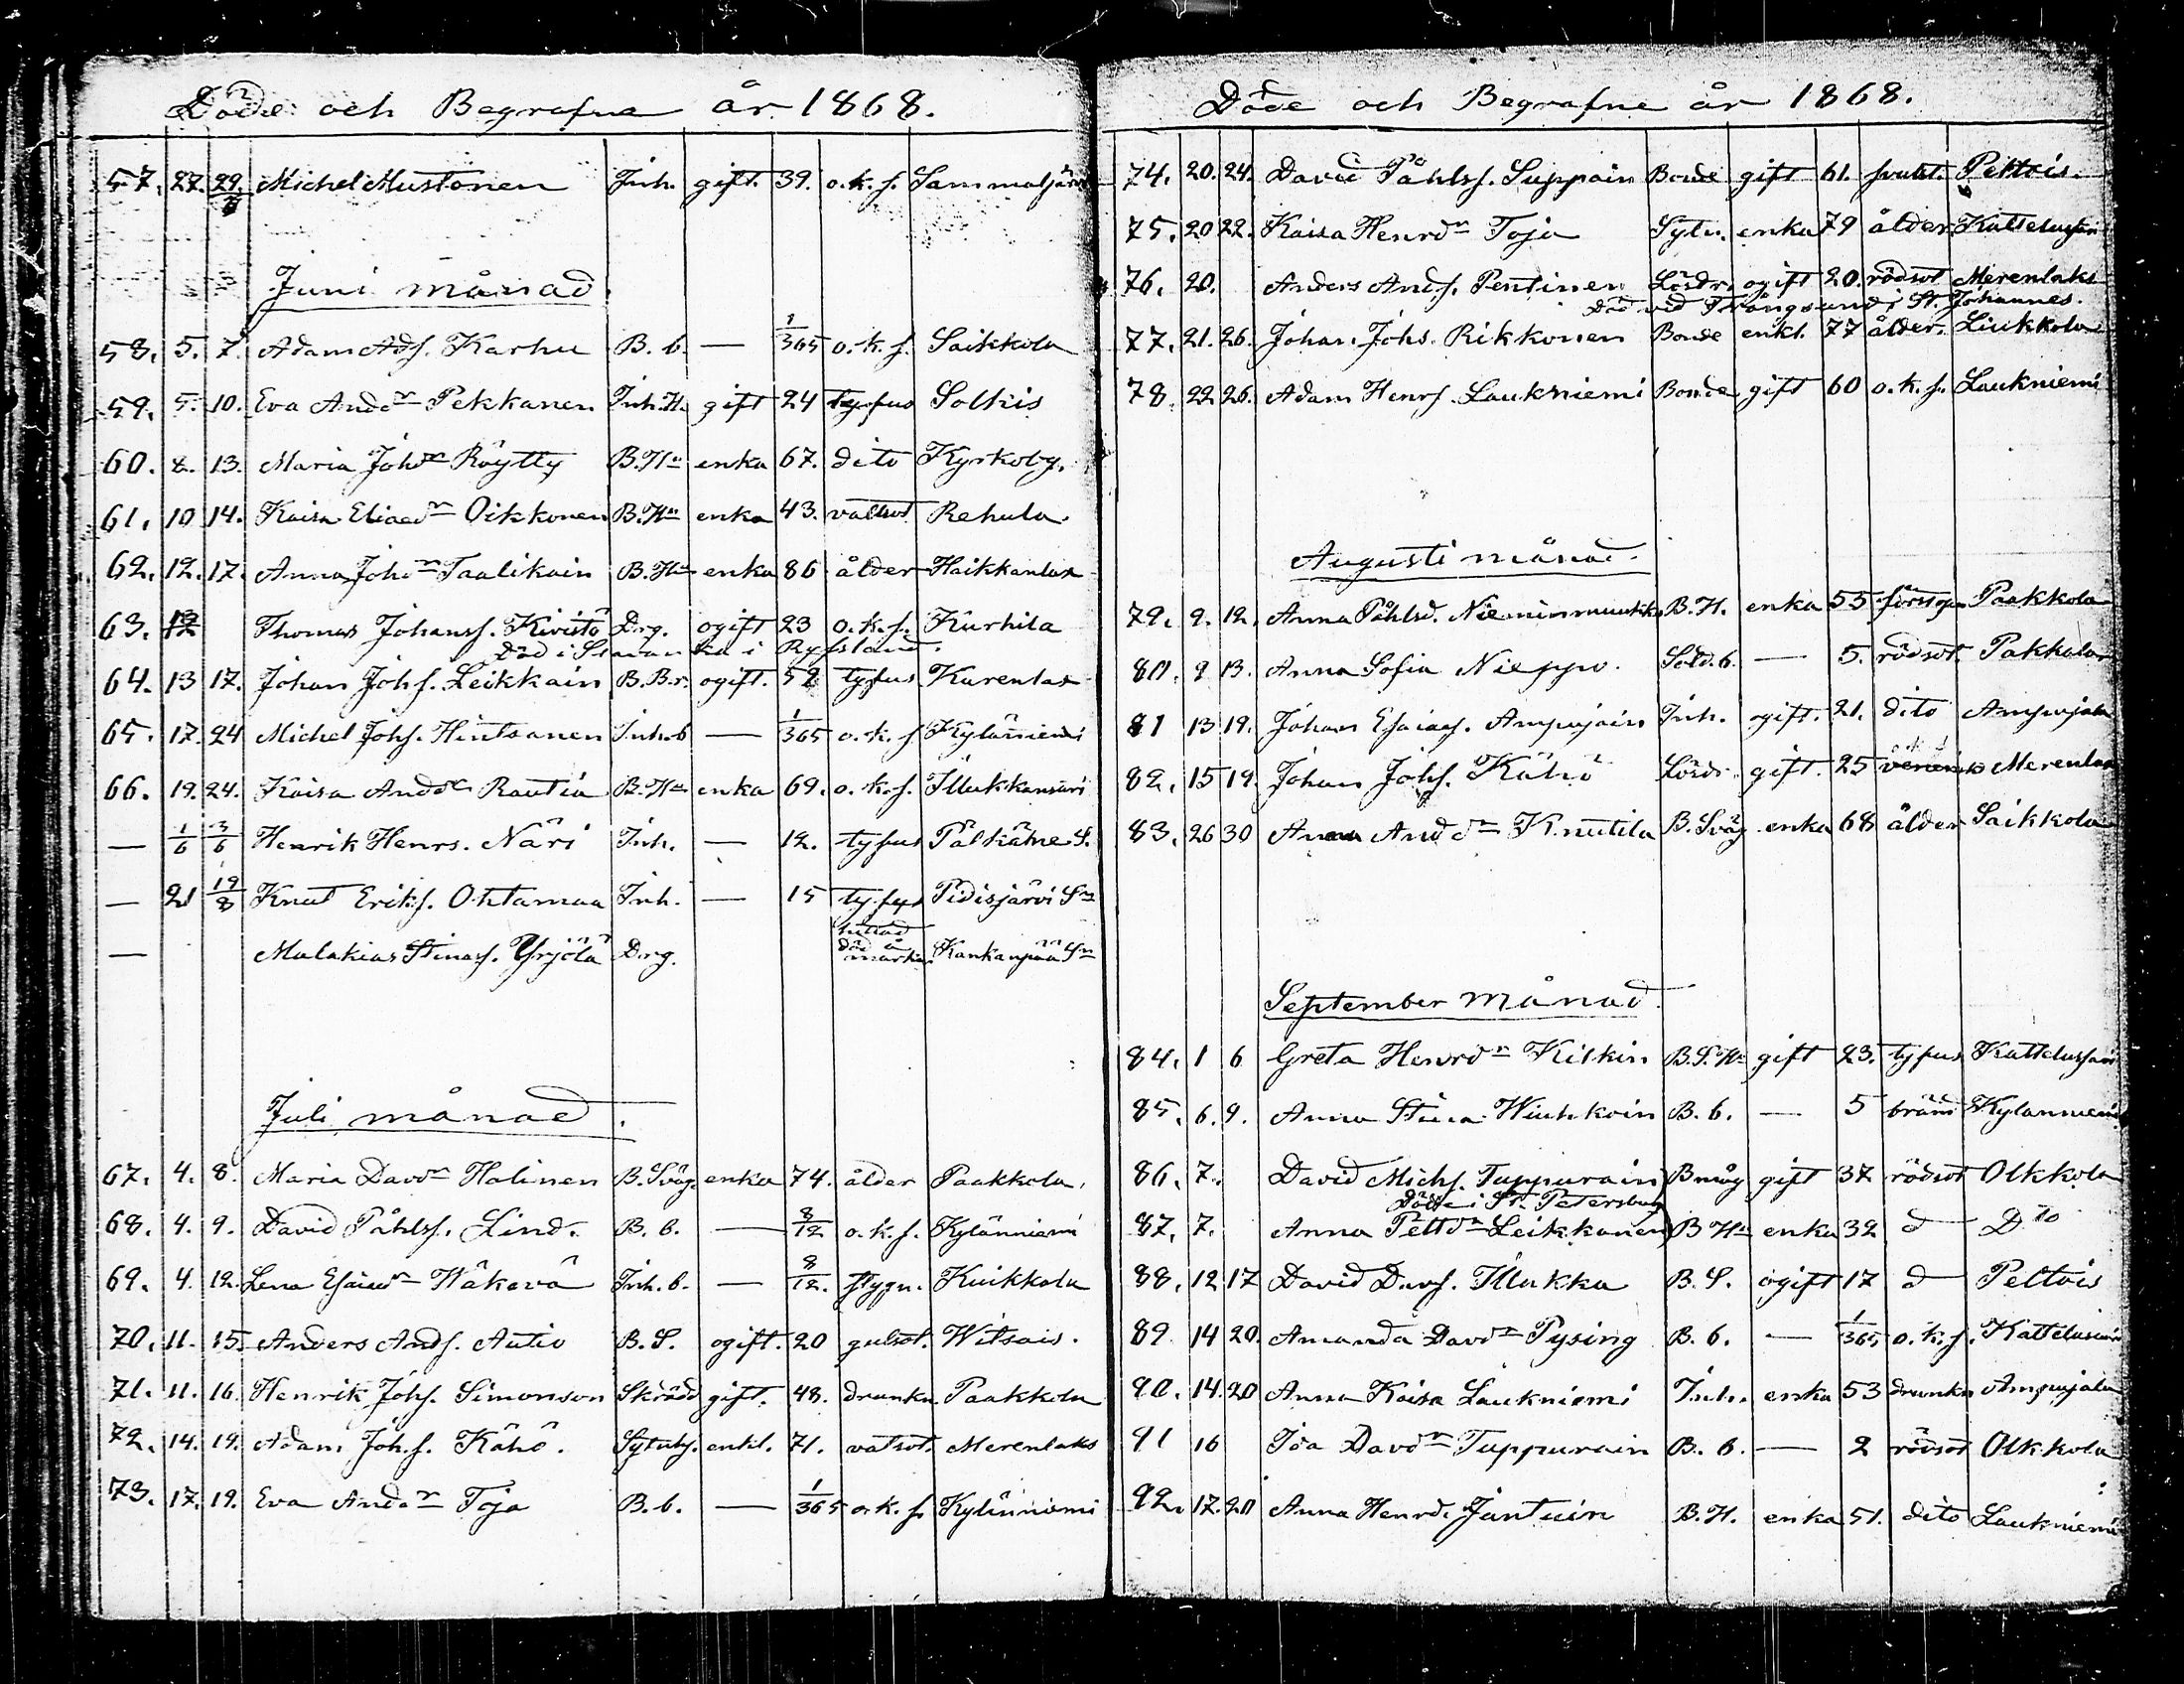 Döde och Begrafne år 1868.
57. 27. 29. Michel Mustonen Inh. gift. 39. o.k.s. Sammaljärvi
Juni månad.
58. 5. 7. Adam Ads. Karhu B.b. — 1/365 o.k.s. Saikkola
59. 5. 10. Eva Andrn Pekkanen Inh.H. gift 24 tyfus Solkis
60. 8. 13. Maria Johdn Röytty B.Hn enka 67. dito Kyrkoby.
61. 10 14. Kaisa Eliaedn Oikkonen B.Hn enka 43. vattsot Rehula
62. 12. 17. Anna Johdn Taalikain B.Hn enka 86 ålder Haikkanlax
63. 12 Thomas Johanss. Kivistö Drg. ogift 23 o.k.s. Kurhila
Död i i Ryssland.
64. 13 17. Johan Johs. Leikkain B.Br. ogift. 52 tyfus Karenlax
65. 17. 24 Michel Johs. Hintsanen Inh.b — 1/365 o.k.s. Kylänniemi
66. 19. 24. Kaisa Anddn Rautia B.Hn enka 69. o.k.s. Illukkansaari
— 1/6 3/6 Henrik Henrs. Näri Inh. — 12. tyfus Pälkäne S.
— 21 19/8 Knut Eriks. Ohtamaa Inh. — 15 tyfus Pidisjärvi Sn
— Malakias Stinas. Yrjölä Drg. hittad död å marken Kankanpää Sn
Juli månad.
67. 4. 8. Maria Davdn Halinen B.Svåg. enka 74. ålder Paakkola.
68. 4. 9. David Påhls. Lind. B.b. — 8/12 o.k.s. Kylänniemi
69. 4. 12. Lena Esaiedn Wäkevä Inh.b. — 8/12. slygn. Kuikkola
70. 11. 15. Anders Ands. Autio B.S. ogift. 20 gulsot. Witsais.
71. 11. 16. Henrik Johs. Simonson Skrädd gift. 48. drunkn. Paakkola
72. 14. 19. Adam Joh.s. Kähö. Sytnhj. enkl. 71. vatsot. Merenlaks
73. 17. 19. Eva Anddn Toja B.b. — 1/365 o.k.s. Kylänniemi
Döde och Begrafne år 1868.
74. 20. 24. David Påhlss. Suppain Bonde gift 61. Peltois.
75. 20 22. Kaisa Henrdn Toja Sytn. enka 79 ålder Kattelussaari
76. 20. Anders Ands. Pentinen Lösdr. ogift 20. rödsot Merenlaks
Död vid Trångsund i St. Johannes.
77. 21. 26. Johan Johs. Rikkonen Bonde enkl. 77 ålder. Liukkola
78. 22 26. Adam Henrs. Laukniemi Bonde gift 60 o.k.s. Laukniemi
Augusti månad.
79. 9. 12. Anna Påhlsd. Nieminmuukko B.H. enka 55 Paakkola
80. 9 13. Anna Sofia Nieppo. Sold.b. — 5. rödsot Pakkalax
81 13 19. Johan Esaias. Ampujain Inh. ogift. 21. dito Ampujala
82. 15 19. Johan Johs. Kähö Lösdr. gift. 25 o.k.s venerisk Merenlax
83. 26 30 Anna Anddn Knutila B.Svåg enka 68 ålder Saikkola
September månad.
84. 1 6 Greta Henrdn Kiiskin B.S.Hn gift 23. tyfus Kattelussaari
85. 6. 9. Anna Stina Wiuhkoin B.b. — 5 bränd Kylänniemi
86. 7. David Michs. Tuppurain Bmåg gift 37 rödsot Olkkola
Döde i St. Petersburg
87. 7. Anna Petdn Leikkanen B Hn enka 32 d Dto
88. 12 17 David Davs. Illukka B.S. ogift 17 d Peltois
89 14 20. Amanda Davdn Pysing B.b. — 1/365 o.k.s. Kattelussaari
90. 14. 20 Anna Kaisa Laukniemi Inh. enka 53 drunkn Ampujala
91 16 Ida Davdn Tuppurain B.b. — 2 rödsot Olkkola
92. 17. 20 Anna Henrd. Jantuin B.H. enka 51. dito Laukniemi